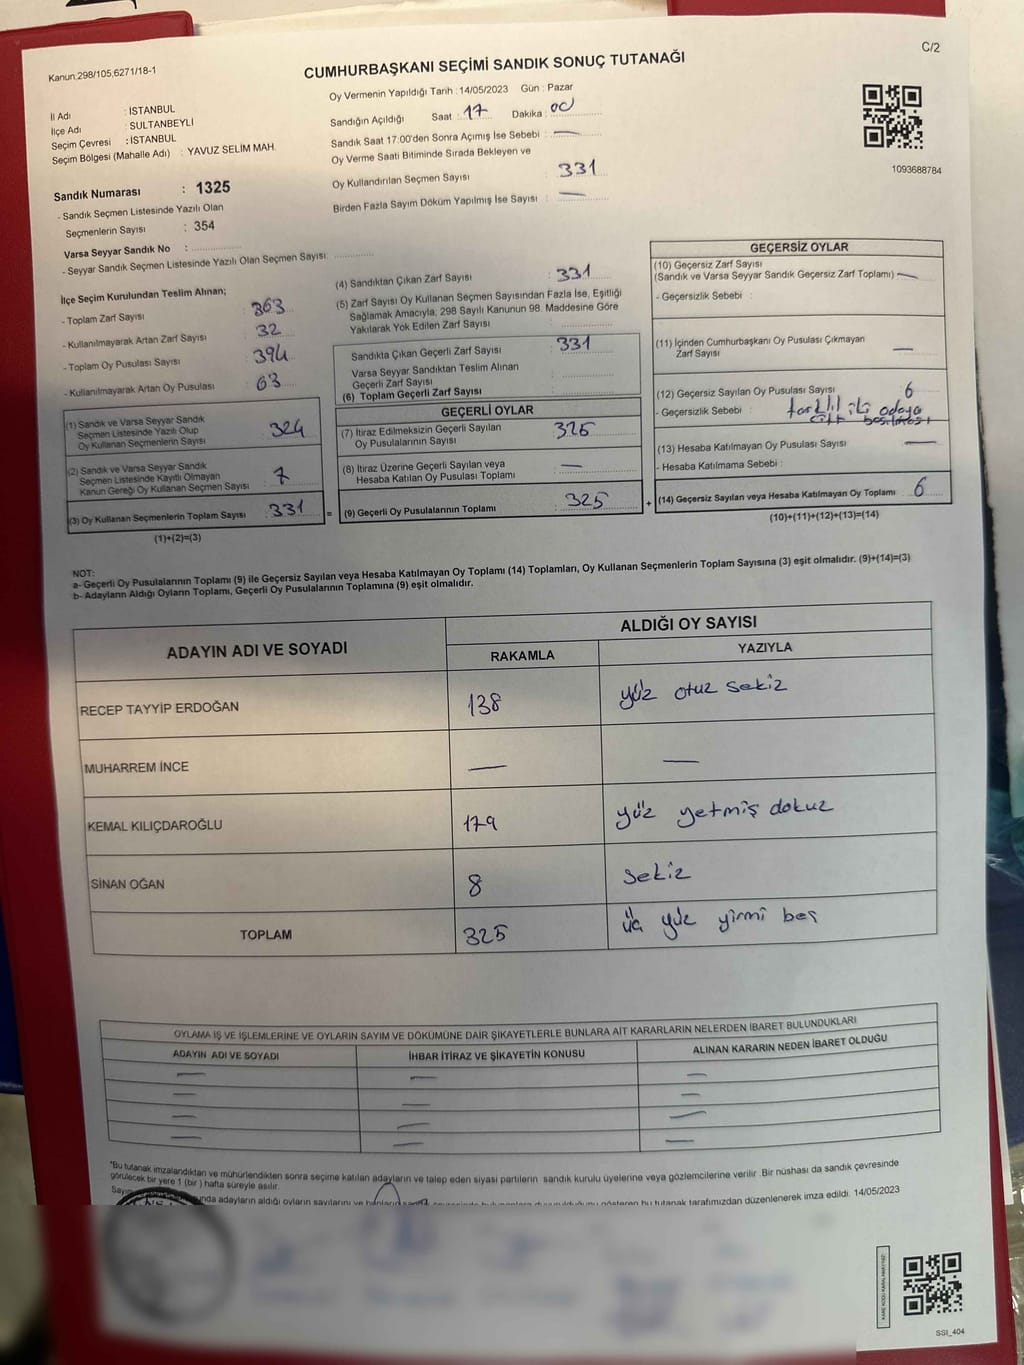 C/2
Kanun.298/105,6271/18-1
CUMHURBAŞKANI SEÇİMİ SANDIK SONUÇ TUTANAĞI
İl Adı : İSTANBUL
İlçe Adı : SULTANBEYLİ
Seçim Çevresi : İSTANBUL
Seçim Bölgesi (Mahalle Adı) : YAVUZ SELİM MAH.
Oy Vermenin Yapıldığı Tarih :14/05/2023 Gün : Pazar
Sandığın Açıldığı Saat : 17 Dakika : 00
Sandık Saat 17:00'den Sonra Açılmış İse Sebebi : —
Oy Verme Saati Bitiminde Sırada Bekleyen ve
Oy Kullandırılan Seçmen Sayısı : 331
Birden Fazla Sayım Döküm Yapılmış İse Sayısı : —
1093688784
Sandık Numarası : 1325
- Sandık Seçmen Listesinde Yazılı Olan
Seçmenlerin Sayısı : 354
Varsa Seyyar Sandık No :
- Seyyar Sandık Seçmen Listesinde Yazılı Olan Seçmen Sayısı:
İlçe Seçim Kurulundan Teslim Alınan;
- Toplam Zarf Sayısı : 363
- Kullanılmayarak Artan Zarf Sayısı : 32
- Toplam Oy Pusulası Sayısı : 394
- Kullanılmayarak Artan Oy Pusulası : 63
(1) Sandık ve Varsa Seyyar Sandık
Seçmen Listesinde Yazılı Olup
Oy Kullanan Seçmenlerin Sayısı : 324
(2) Sandık ve Varsa Seyyar Sandık
Seçmen Listesinde Kayıtlı Olmayan
Kanun Gereği Oy Kullanan Seçmen Sayısı : 7
(3) Oy Kullanan Seçmenlerin Toplam Sayısı : 331 =
(1)+(2)=(3)
(4) Sandıktan Çıkan Zarf Sayısı : 331
(5) Zarf Sayısı Oy Kullanan Seçmen Sayısından Fazla İse, Eşitliği
Sağlamak Amacıyla; 298 Sayılı Kanunun 98. Maddesine Göre
Yakılarak Yok Edilen Zarf Sayısı :
Sandıkta Çıkan Geçerli Zarf Sayısı : 331
Varsa Seyyar Sandıktan Teslim Alınan
Geçerli Zarf Sayısı :
(6) Toplam Geçerli Zarf Sayısı :
GEÇERLİ OYLAR
(7) İtiraz Edilmeksizin Geçerli Sayılan
Oy Pusulalarının Sayısı : 325
(8) İtiraz Üzerine Geçerli Sayılan veya
Hesaba Katılan Oy Pusulası Toplamı : —
(9) Geçerli Oy Pusulalarının Toplamı : 325 +
GEÇERSİZ OYLAR
(10) Geçersiz Zarf Sayısı
(Sandık ve Varsa Seyyar Sandık Geçersiz Zarf Toplamı) : —
- Geçersizlik Sebebi :
(11) İçinden Cumhurbaşkanı Oy Pusulası Çıkmayan
Zarf Sayısı : —
(12) Geçersiz Sayılan Oy Pusulası Sayısı : 6
- Geçersizlik Sebebi : farklı iki adaya
basılması
(13) Hesaba Katılmayan Oy Pusulası Sayısı : —
- Hesaba Katılmama Sebebi :
(14) Geçersiz Sayılan veya Hesaba Katılmayan Oy Toplamı : 6
(10)+(11)+(12)+(13)=(14)
NOT:
a- Geçerli Oy Pusulalarının Toplamı (9) ile Geçersiz Sayılan veya Hesaba Katılmayan Oy Toplamı (14) Toplamları, Oy Kullanan Seçmenlerin Toplam Sayısına (3) eşit olmalıdır. (9)+(14)=(3)
b- Adayların Aldığı Oyların Toplamı, Geçerli Oy Pusulalarının Toplamına (9) eşit olmalıdır.
ADAYIN ADI VE SOYADI ALDIĞI OY SAYISI
RAKAMLA YAZIYLA
RECEP TAYYİP ERDOĞAN 138 yüz otuz sekiz
MUHARREM İNCE — —
KEMAL KILIÇDAROĞLU 179 yüz yetmiş dokuz
SİNAN OĞAN 8 sekiz
TOPLAM 325 üç yüz yirmi beş
OYLAMA İŞ VE İŞLEMLERİNE VE OYLARIN SAYIM VE DÖKÜMÜNE DAİR ŞİKAYETLERLE BUNLARA AİT KARARLARIN NELERDEN İBARET BULUNDUKLARI
ADAYIN ADI VE SOYADI İHBAR İTİRAZ VE ŞİKAYETİN KONUSU ALINAN KARARIN NEDEN İBARET OLDUĞU
— — —
— — —
— — —
— — —
*Bu tutanak imzalandıktan ve mühürlendikten sonra seçime katılan adayların ve talep eden siyasi partilerin sandık kurulu üyelerine veya gözlemcilerine verilir. Bir nüshası da sandık çevresinde
görülecek bir yere 1 (bir) hafta süreyle asılır.
adayların aldığı oyların sayılarını ve gösteren bu tutanak tarafımızdan düzenlenerek imza edildi. 14/05/2023
SSI_404